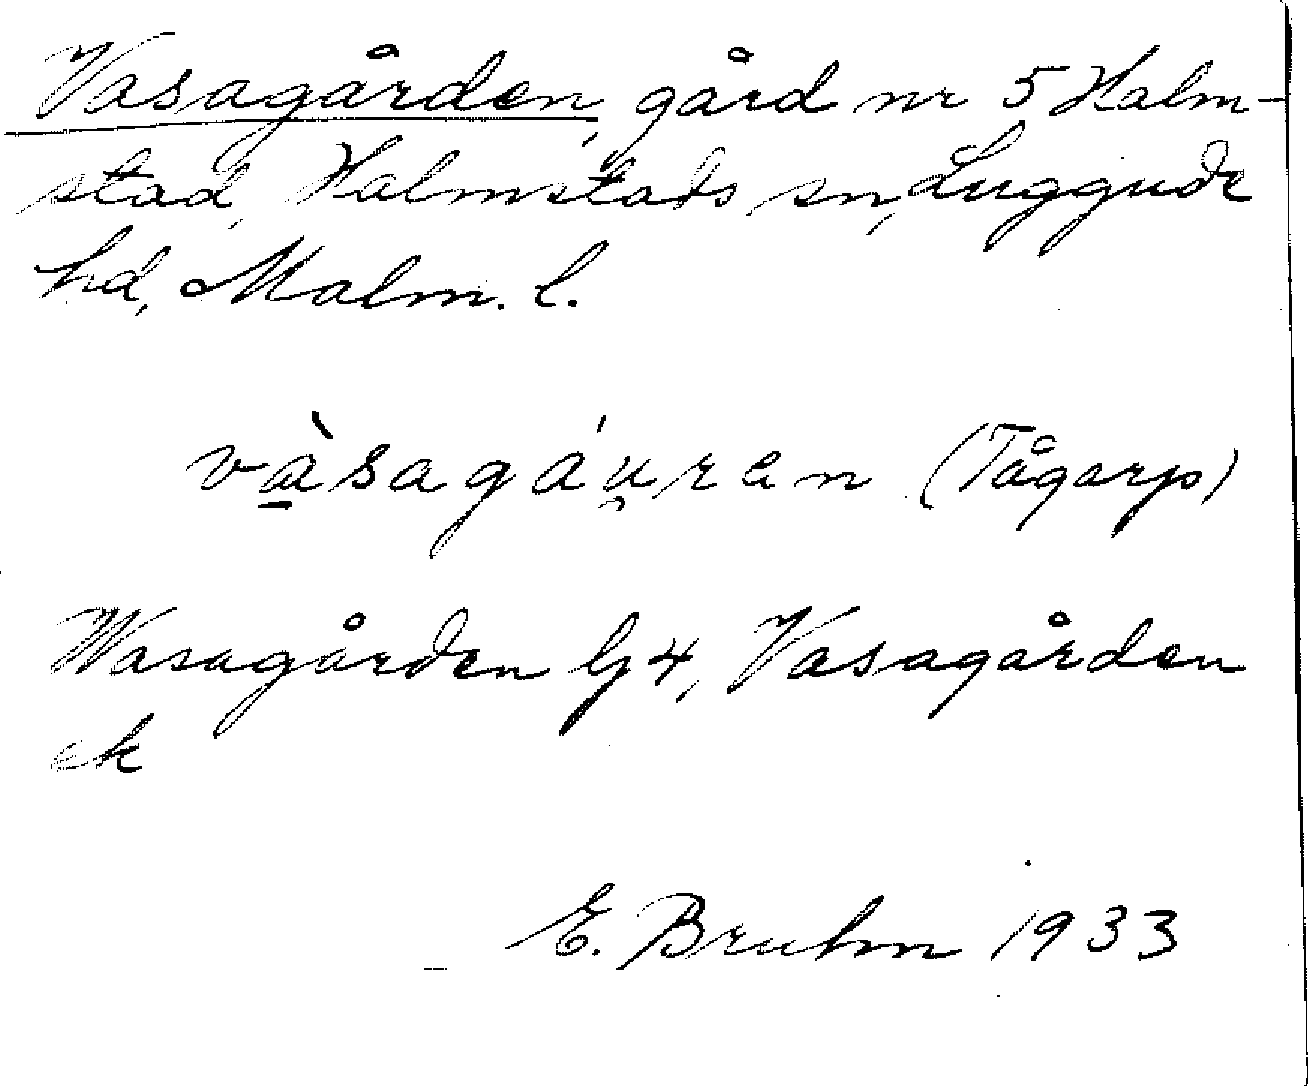 Vasagården, gård nr 5 Halm-
stad, Halmstads sn, Luggude
hd, Malm. l.
và̱sagáu̯ren (Tågarp)
Wasagården Gj 4, Vasagården
ek
E. Bruhn 1933